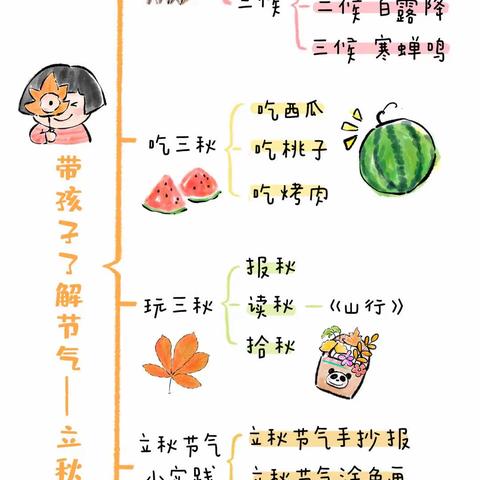 带孩子了解节气——立秋
三候
二候 白露降
三候 寒蝉鸣
吃三秋
吃西瓜
吃桃子
吃烤肉
玩三秋
报秋
读秋 — 《山行》
拾秋
立秋节气
小实践
立秋节气手抄报
立秋节气涂色画